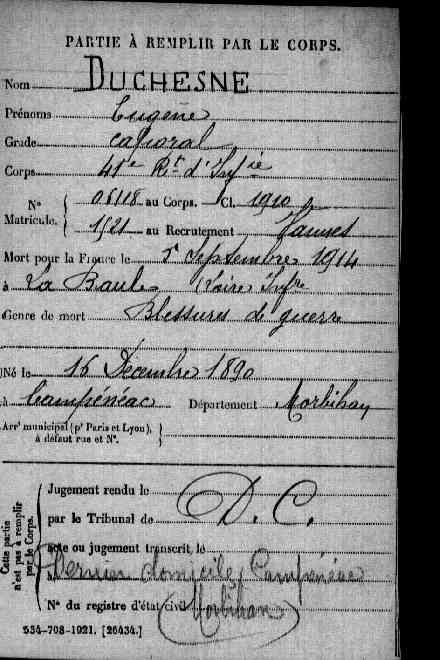 PARTIE À REMPLIR PAR LE CORPS.
Nom DUCHESNE
Prénoms Eugène
Grade caporal
Corps 41e Rt d'Infie
No Matricule. { 06118 au Corps. Cl. 1910
1521 au Recrutement Vannes
Mort pour la France le 5 Septembre 1914
à La Baule (Loire Infre
Genre de mort Blessures de guerre
Né le 16 Décembre 1890
à Campénéac Département Morbihan
Arrt municipal (pr Paris et Lyon), à défaut rue et No. }
Cette partie n'est pas à remplir par le Corps.
Jugement rendu le
par le Tribunal de D. C.
acte ou jugement transcrit le
à Dernier domicile, Campénéac
No du registre d'état civil Morbihan
534-708-1921. [26434.]